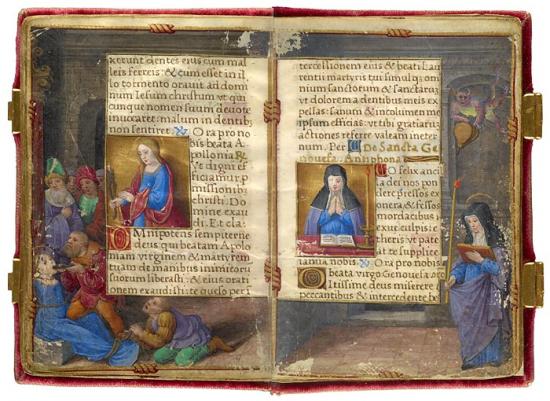 xerunt dentes eius cum mal
leis ferreis: & cum esset in il
lo tormento orauit ad domi
num Iesum christum vt qui
cunque nomen suum deuote
inuocaret: malum in dentib
non sentiret. Ora pro no
bis beata A
pollonia &
Vt digni ef
ficiamur p
missionib
christi. Do
mine exau
di. Et cla:
OMnipotens sempiterne
deus qui beatam Apolo
niam virginem & martyrem
tuam de manibus inimicoru
suorum liberasti, & eius oratio
nem exaudisti: te queso per i
tercessionem eius & beati Lau
rentii martyris tui simul & om
nium sanctorum & sanctaru:
vt dolorem a dentibus meis ex
pellas: sanum & incolumem
ipsum efficias: vt tibi gratiaru
actiones referre valeam in eter
num. Per De Sancta Ge
nouefa. Antiphona
O felix anci
la dei nos pon
dere pressos
exonera & fessos
mordacibus
exue culpis:
theris vt pate
at te supplice
ianua nobis. Ora pro nobis
beata virgo Genouefa oro
Oltissime deus miserere
peccantibus & intercedente be